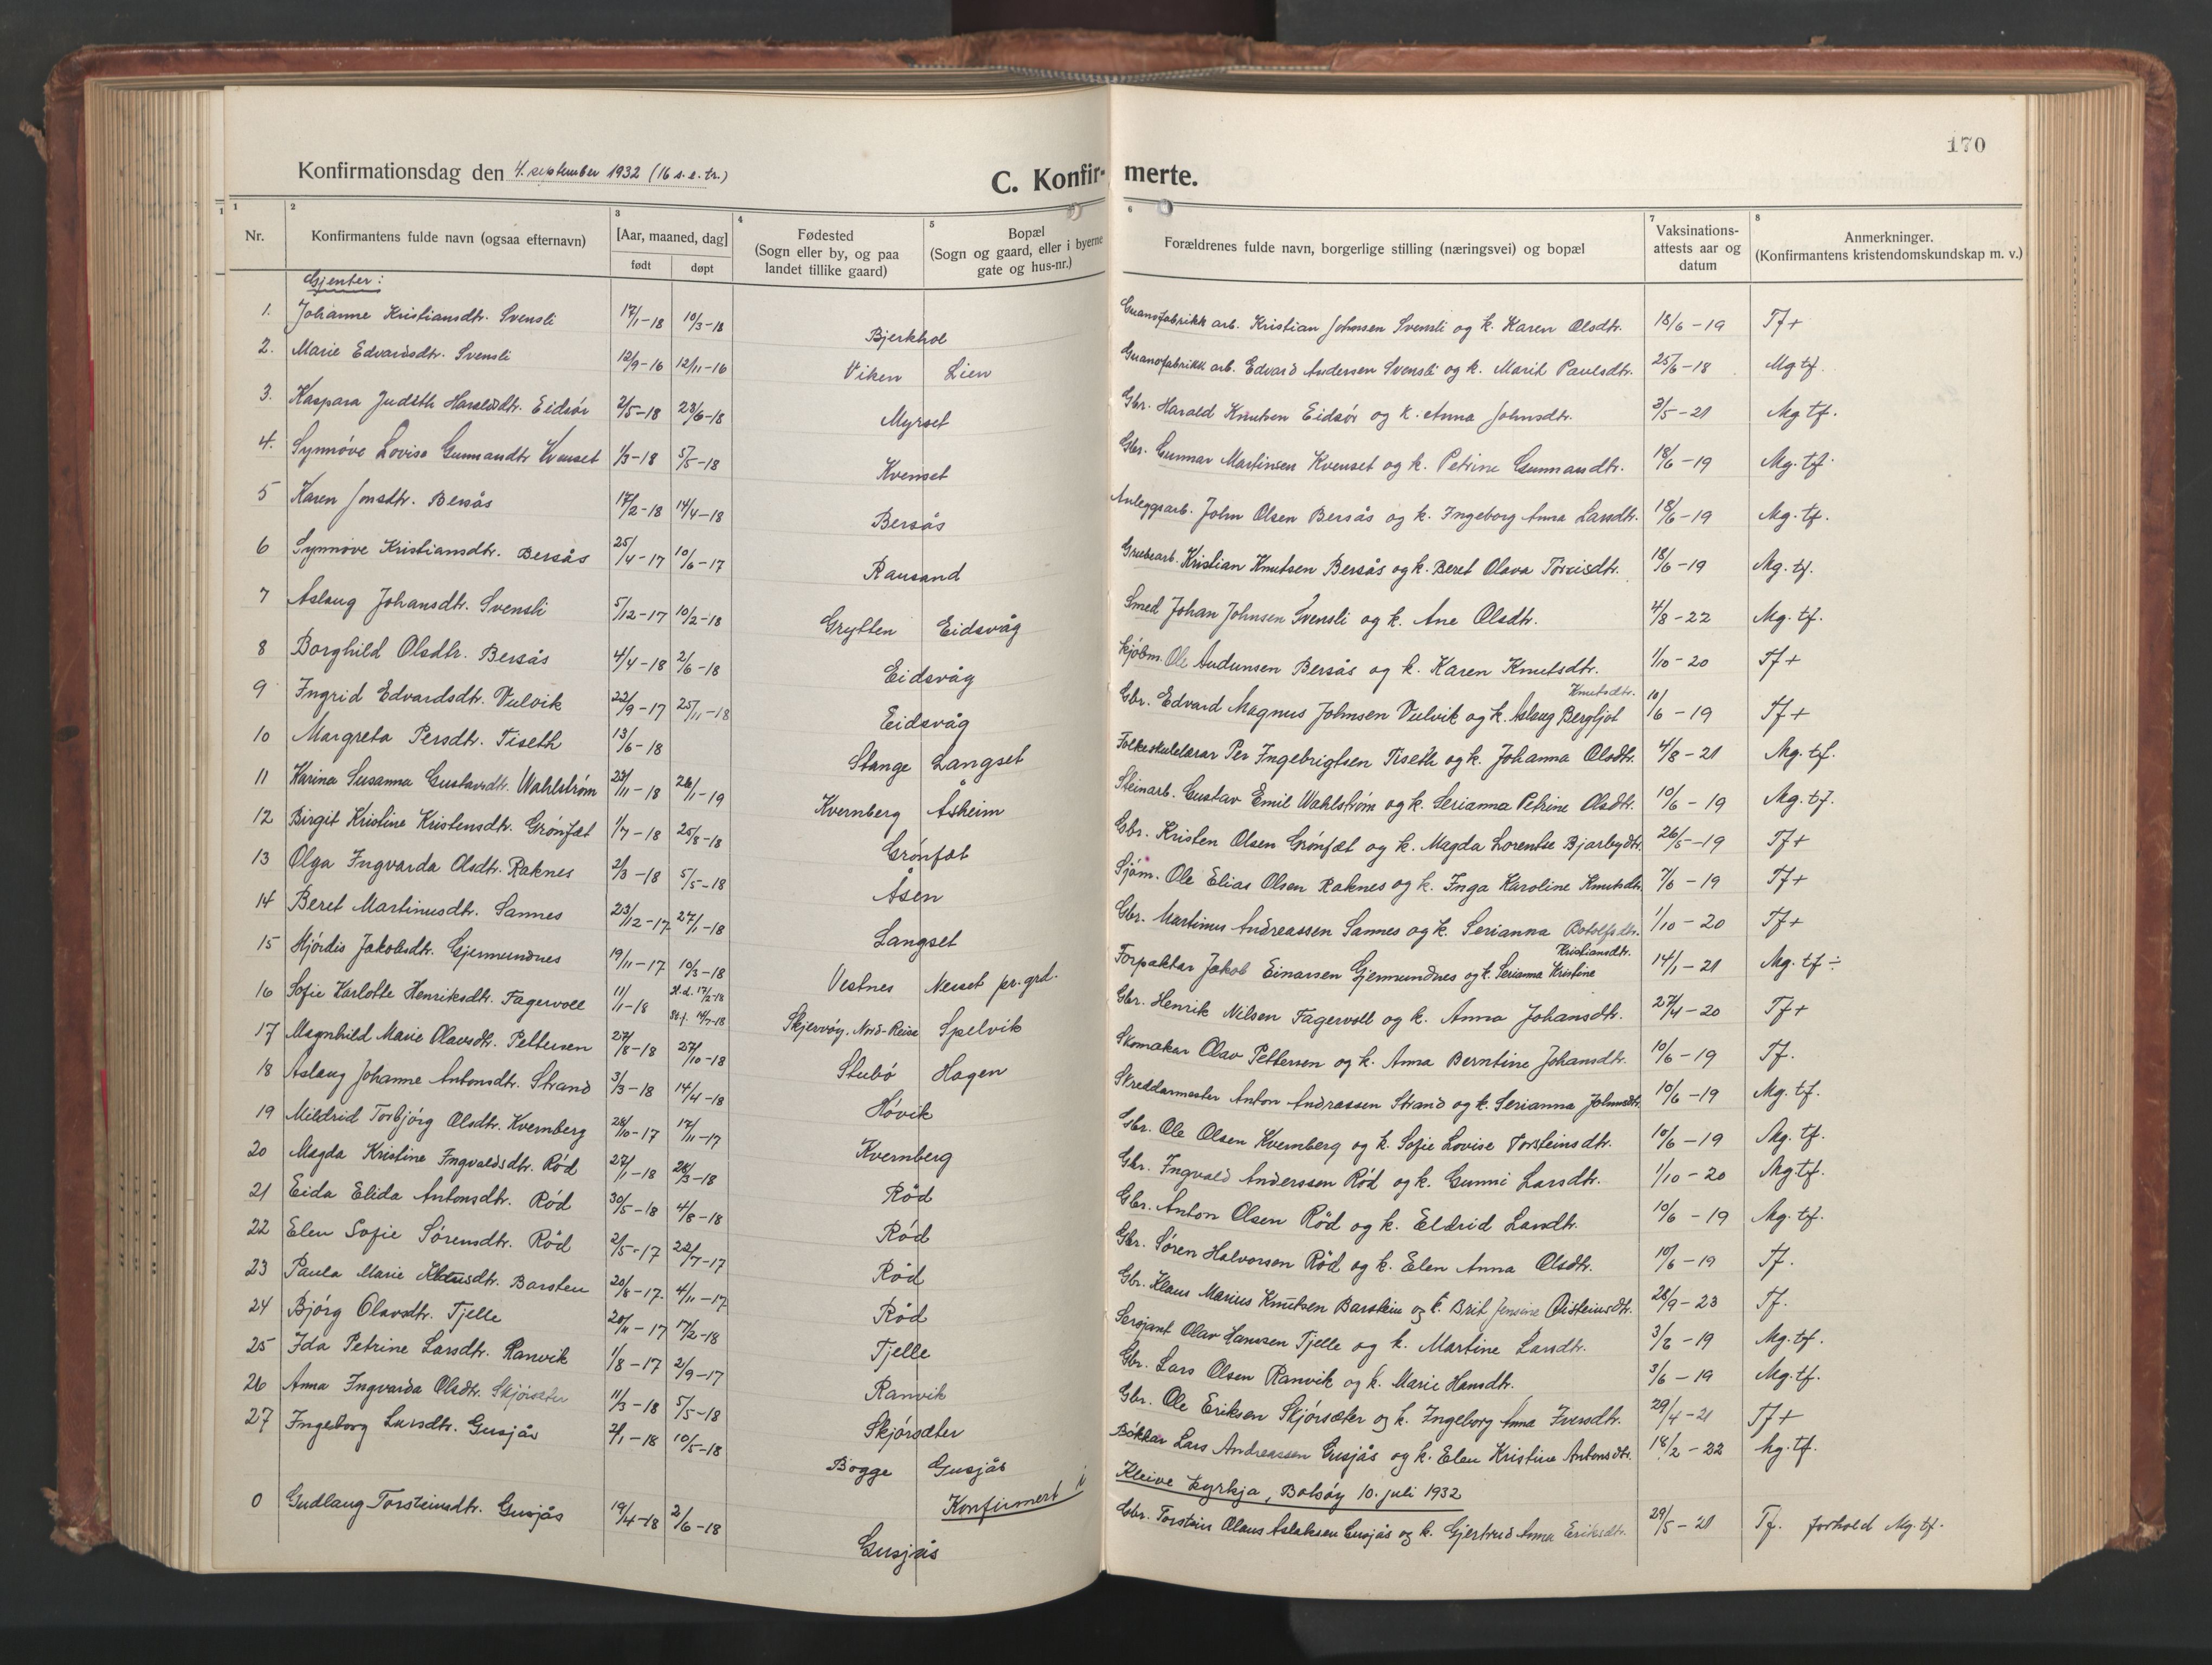 170
Konfirmationsdag den 4. september 1932 (16 s. e. tr.)
C. Konfirmerte.
1 2 3 4 5 6 7 8
Nr. Konfirmantens fulde navn (ogsaa efternavn) [Aar, maaned, dag] født døpt Fødested (Sogn eller by, og paa landet tillike gaard) Bopæl (Sogn og gaard, eller i byerne gate og hus-nr.) Forældrenes fulde navn, borgerlige stilling (næringsvei) og bopæl Vaksinations-attests aar og datum Anmerkninger. (Konfirmantens kristendomskundskap m. v.)
Gjenter:
1. Johanne Kristiansdtr. Svensli 17/1-18 10/3-18 Bjerkhol Guanofabrikk arb. Kristian Johnsen Svensli og k. Karen Olsdtr. 18/6-19 Tf+
2. Marie Edvardsdtr. Svensli 12/9-16 12/11-16 Viken Lien Guanofabrikk arb. Edvard Andersen Svensli og k. Marit Paulsdtr. 25/6-18 Mg tf.
3. Kaspara Judith Haraldsdtr. Eidsør 2/5-18 23/6-18 Myrset Gbr. Harald Knutsen Eidsør og k. Anna Johnsdtr. 3/5-21 Mg tf.
4. Synnøve Lovise Gunnarsdtr Kvenset 1/3-18 5/5-18 Kvenset Gbr. Gunnar Martinsen Kvenset og k. Petrine Gunnarsdtr. 18/6-19 Mg. tf.
5 Karen Jonsdtr. Bersås 17/2-18 14/4-18 Bersås Anleggsarb. John Olsen Bersås og k. Ingeborg Anna Larsdtr. 18/6-19 Mg. tf.
6 Synnøve Kristiansdtr. Bersås 25/4-17 10/6-17 Rausand Grubearb. Kristian Knutsen Bersås og k. Beret Olava Torrisdtr. 18/6-19 Mg. tf.
7 Aslaug Johansdtr. Svensli 5/12-17 10/2-18 Grytten Eidsvåg Smed Johan Johnsen Svensli og k. Ane Olsdtr. 4/8-22 Mg. tf.
8 Borghild Olsdtr. Bersås 4/4-18 2/6-18 Eidsvåg Kjøbm. Ole Audunsen Bersås og k. Karen Knutsdtr. 1/10-20 Tf+
9 Ingrid Edvardsdtr. Vulvik 22/9-17 25/11-18 Eidsvåg Gbr. Edvard Magnus Johnsen Vulvik og k. Aslaug Bergljot Knutsdtr. 10/6-19 Tf+
10 Margreta Persdtr. Tiseth 13/6-18 Stange Langset Folkeskulelærar Per Ingebrigtsen Tiseth og k. Johanna Olsdtr. 4/8-21 Mg. tf.
11 Karina Susanna Gustavsdtr. Wahlstrøm 23/11-18 26/1-19 Kvernberg Åsheim Steinarb. Gustav Emil Wahlstrøm og k. Serianna Petrine Olsdtr. 10/6-19 Mg. tf.
12 Birgit Kristine Kristensdtr. Grønfæt 1/7-18 25/8-18 Grønfæt Gbr. Kristen Olsen Grønfæt og k. Magda Lorentse 26/5-19 Tf+
13 Olga Ingvarda Olsdtr. Raknes 2/3-18 5/5-18 Åsen Sjøm. Ole Elias Olsen Raknes og k. Inga Karoline Knutsdtr. 7/6-19 Tf+
14 Beret Martinusdtr. Sannes 23/12-17 27/1-18 Langset Gbr. Martinus Andreassen Sannes og k. Serianna Botolfsdtr. 1/10-20 Tf+
15 Hjørdis Jakobsdtr. Gjermundnes 19/11-17 10/3-18 Vestnes Nesset pr. grd. Forpaktar Jakob Einarsen Gjermundnes og k. Serianna Kristine Kristiansdtr. 14/1-21 Mg. tf ÷
16 Sofie Karlotte Henriksdtr. Fagervoll 11/1-18 H.d. 17/2-18 St.f. 14/7-18 Skjervøy. Nord-Reisa Spelvik Gbr. Henrik Nilsen Fagervoll og k. Anna Johansdtr. 27/4-20 Tf+
17 Magnhild Marie Olavsdtr. Pettersen 27/8-18 27/10-18 Stubø Hagen Skomakar Olav Pettersen og k. Anna Berntine Johansdtr. 10/6-19 Tf.
18 Aslaug Johanne Antonsdtr. Strand 3/3-18 14/4-18 Høvik Skreddarmester Anton Andreassen Strand og k. Serianna Johnsdtr. 10/6-19 Mg. tf.
19 Mildrid Torbjørg Olsdtr. Kvernberg 28/10-17 17/11-17 Kvernberg Gbr. Ole Olsen Kvernberg og k. Sofie Lovise Torsteinsdtr. 10/6-19 Mg. tf.
20 Magda Kristine Ingvaldsdtr. Rød 27/1-18 28/3-18 Rød Gbr. Ingvald Anderssen Rød og k. Gunni Larsdtr. 1/10-20 Mg tf.
21 Eida Elida Antonsdtr. Rød 30/5-18 4/8-18 Rød Gbr. Anton Olsen Rød og k. Eldrid Larsdtr. 10/6-19 Mg. tf.
22 Elen Sofie Sørensdtr. Rød 2/5-17 22/7-17 Rød Gbr. Søren Halvorsen Rød og k. Elen Anna Olsdtr. 10/6-19 Tf.
23 Paula Marie Klausdtr. Barsten 20/8-17 4/11-17 Rød Gbr. Klaus Marius Knutsen Barstein og k. Brit Jensine Øisteinsdtr. 28/9-23 Tf.
24 Bjørg Olavsdtr. Tjelle 20/11-17 17/2-18 Tjelle Sersjant Olav Hanssen Tjelle og k. Martine Larsdtr. 3/2-19 Mg. tf.
25 Ida Petrine Larsdtr. Ranvik 1/8-17 2/9-17 Ranvik Gbr. Lars Olsen Ranvik og k. Marie Hansdtr. 3/6-19 Mg. tf.
26 Anna Ingvarda Olsdtr. Skjørsæter 11/3-18 5/5-18 Skjørsæter Gbr. Ole Eriksen Skjørsæter og k. Ingeborg Anna Iversdtr. 29/4-21 Tf+
27 Ingeborg Larsdtr. Gusjås 2/1-18 10/5-18 Bogge Gusjås Bøkkar Lars Andreassen Gusjås og k. Elen Kristine Antonsdtr. 18/2-22 Mg. tf.
Konfirmert i Kleive kyrkja, Bolsøy 10. juli 1932
0 Gudlaug Torsteinsdtr. Gusjås 19/4-18 2/6-18 Gusjås Gbr. Torstein Olaus Aslaksen Gusjås og k. Gjertrud Anna Eriksdtr. 29/5-21 Tf. forhold Mg. tf.